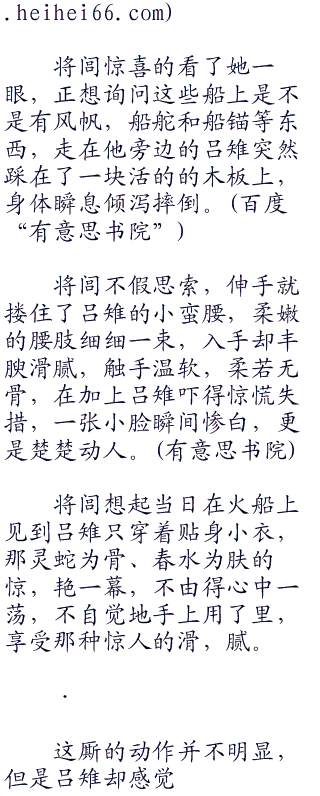 .heihei66.com)
将闾惊喜的看了她一
眼，正想询问这些船上是不
是有风帆，船舵和船锚等东
西，走在他旁边的吕雉突然
踩在了一块活的的木板上，
身体瞬息倾泻摔倒。(百度
“有意思书院”)
将闾不假思索，伸手就
搂住了吕雉的小蛮腰，柔嫩
的腰肢细细一束，入手却丰
腴滑腻，触手温软，柔若无
骨，在加上吕雉吓得惊慌失
措，一张小脸瞬间惨白，更
是楚楚动人。(有意思书院)
将闾想起当日在火船上
见到吕雉只穿着贴身小衣，
那灵蛇为骨、春水为肤的
惊，艳一幕，不由得心中一
荡，不自觉地手上用了里，
享受那种惊人的滑，腻。
.
这厮的动作并不明显，
但是吕雉却感觉